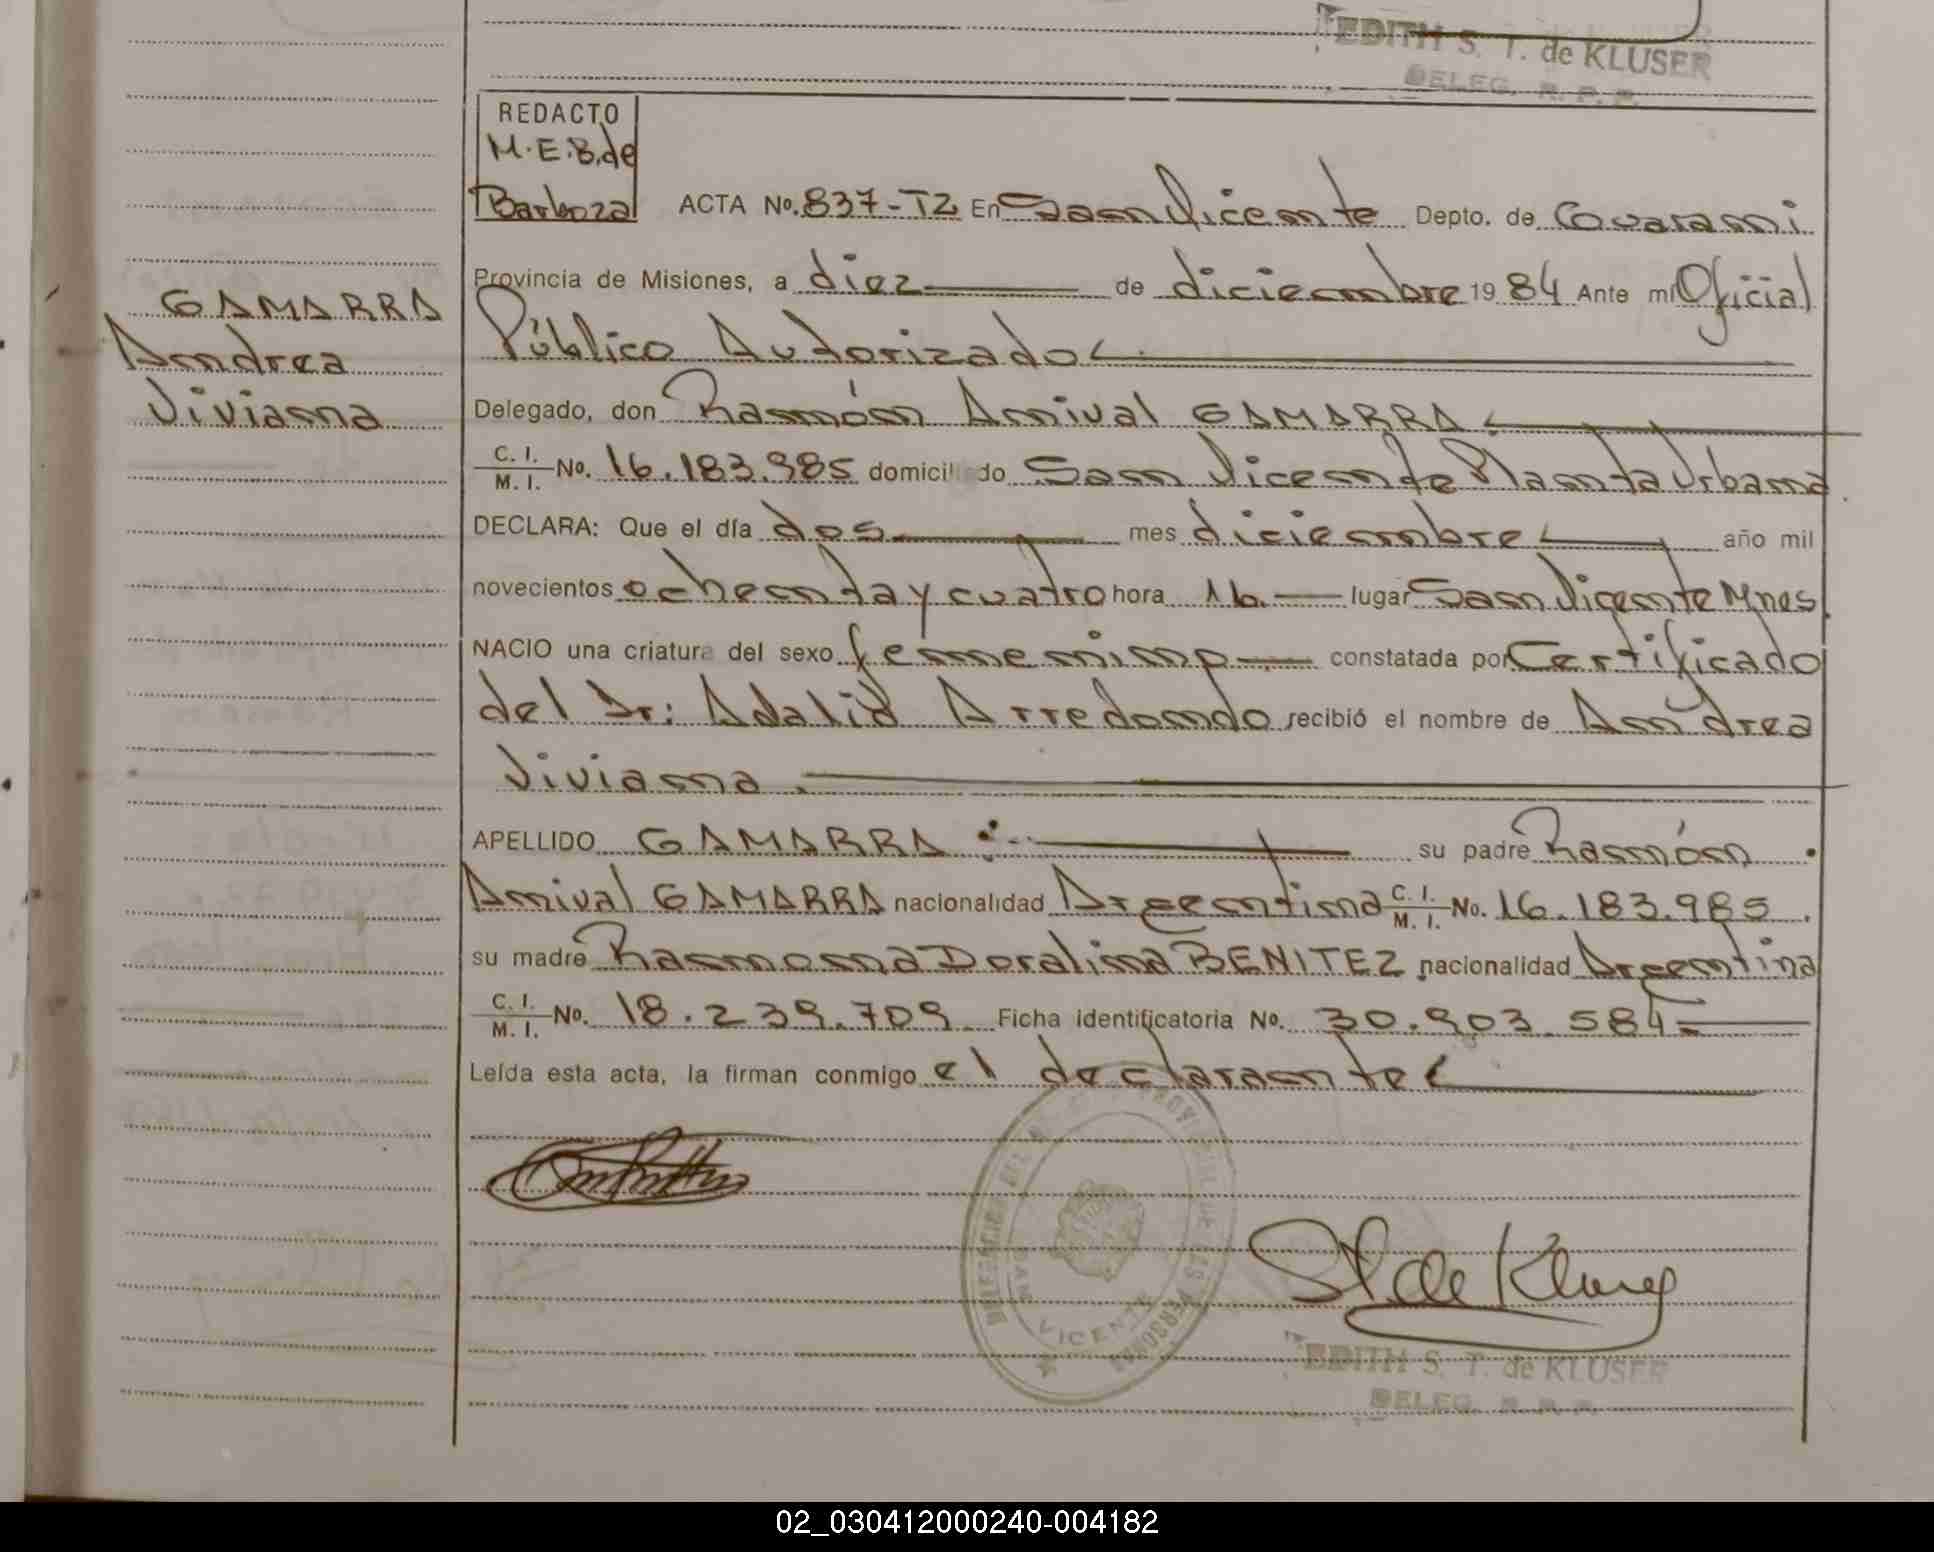 EDITH S. T. de KLUSER
DELEG. R. P. P.
REDACTO
M.E.B. de
Barboza
ACTA No. 837-T2 En San Vicente Depto. de Guarani
Provincia de Misiones, a diez de diciembre 1984 Ante mi Oficial
Público Autorizado
GAMARRA
Andrea
Viviana
Delegado, don Ramón Anival GAMARRA
C. I.
M. I. No. 16.183.985 domiciliado San Vicente Planta Urbana
DECLARA: Que el día dos mes diciembre año mil
novecientos ochenta y cuatro hora 16. lugar San Vicente Mnes.
NACIO una criatura del sexo femenino constatada por Certificado
del Dr: Adalid Arredondo recibió el nombre de Andrea
Viviana.
APELLIDO GAMARRA su padre Ramón
Anival GAMARRA nacionalidad Argentina C. I. M. I. No. 16.183.985.
su madre Ramona Doralina BENITEZ nacionalidad Argentina
C. I.
M. I. No. 18.239.709 Ficha identificatoria No. 30.903.584
Leída esta acta, la firman conmigo el declarante
DELEGACION DEL PROVINCIAL DE LAS PERSONAS
VICENTE
St de Kluser
EDITH S. T. de KLUSER
DELEG. R. P. P.
02_030412000240-004182